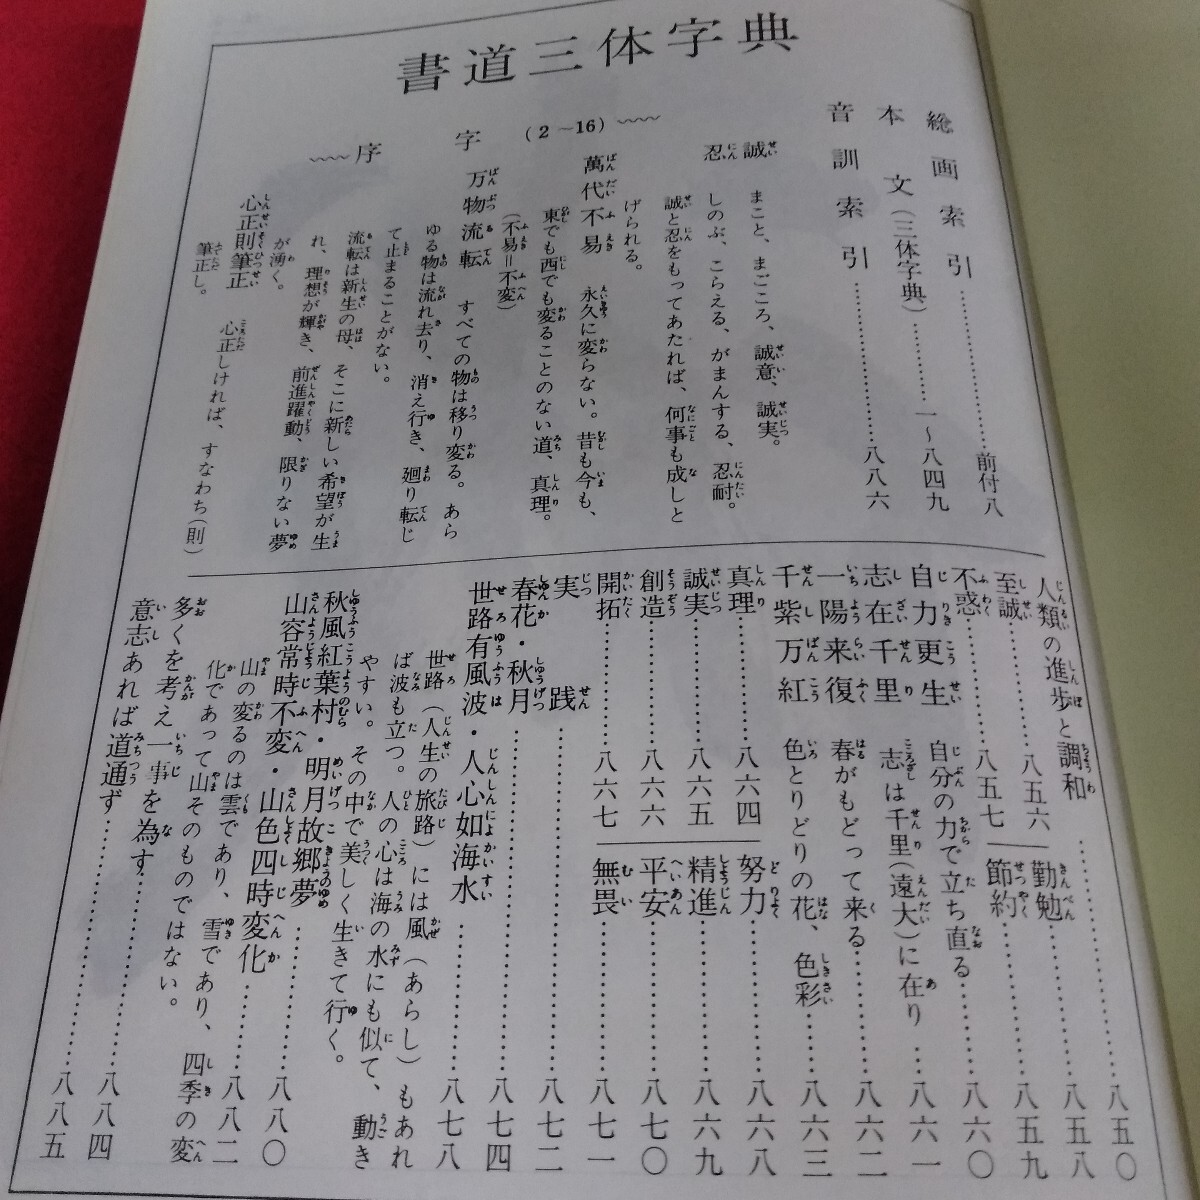 書道三体字典
総画索引……………前付八
本文(三体字典)…………一～八四九
音訓索引………………八八六
序字(2～16)
誠 まこと、まごころ、誠意、誠実。
忍 しのぶ、こらえる、がまんする、忍耐。
誠と忍をもってあたれば、何事も成しと
げられる。
萬代不易 永久に変らない。昔も今も、
東でも西でも変ることのない道、真理。
(不易＝不変)
万物流転 すべての物は移り変る。あら
ゆる物は流れ去り、消え行き、廻り転じ
て止まることがない。
流転は新生の母、そこに新しい希望が生
れ、理想が輝き、前進躍動、限りない夢
が湧く。
心正則筆正 心正しければ、すなわち(則)
筆正し。
人類の進歩と調和……………八五〇
至誠……………八五六
勤勉……………八五八
不惑……………八五七
節約……………八五九
自力更生 自分の力で立ち直る……八六〇
志在千里 志は千里(遠大)に在り……八六一
一陽来復 春がもどって来る……八六二
千紫万紅 色とりどりの花、色彩……八六三
真理……………八六四
努力……………八六八
誠実……………八六五
精進……………八六九
創造……………八六六
平安……………八七〇
開拓……………八六七
無畏……………八七一
実践……………八七二
春花・秋月……………八七四
世路有風波・人心如海水……………八七八
世路(人生の旅路)には風(あらし)もあれ
ば波も立つ。人の心は海の水にも似て、動き
やすい。その中で美しく生きて行く。
秋風紅葉村・明月故郷夢……………八八〇
山容常時不変・山色四時変化……………八八二
山の変るのは雲であり、雪であり、四季の変
化であって山そのものではない。
多くを考え一事を為す……………八八四
意志あれば道通ず……………八八五